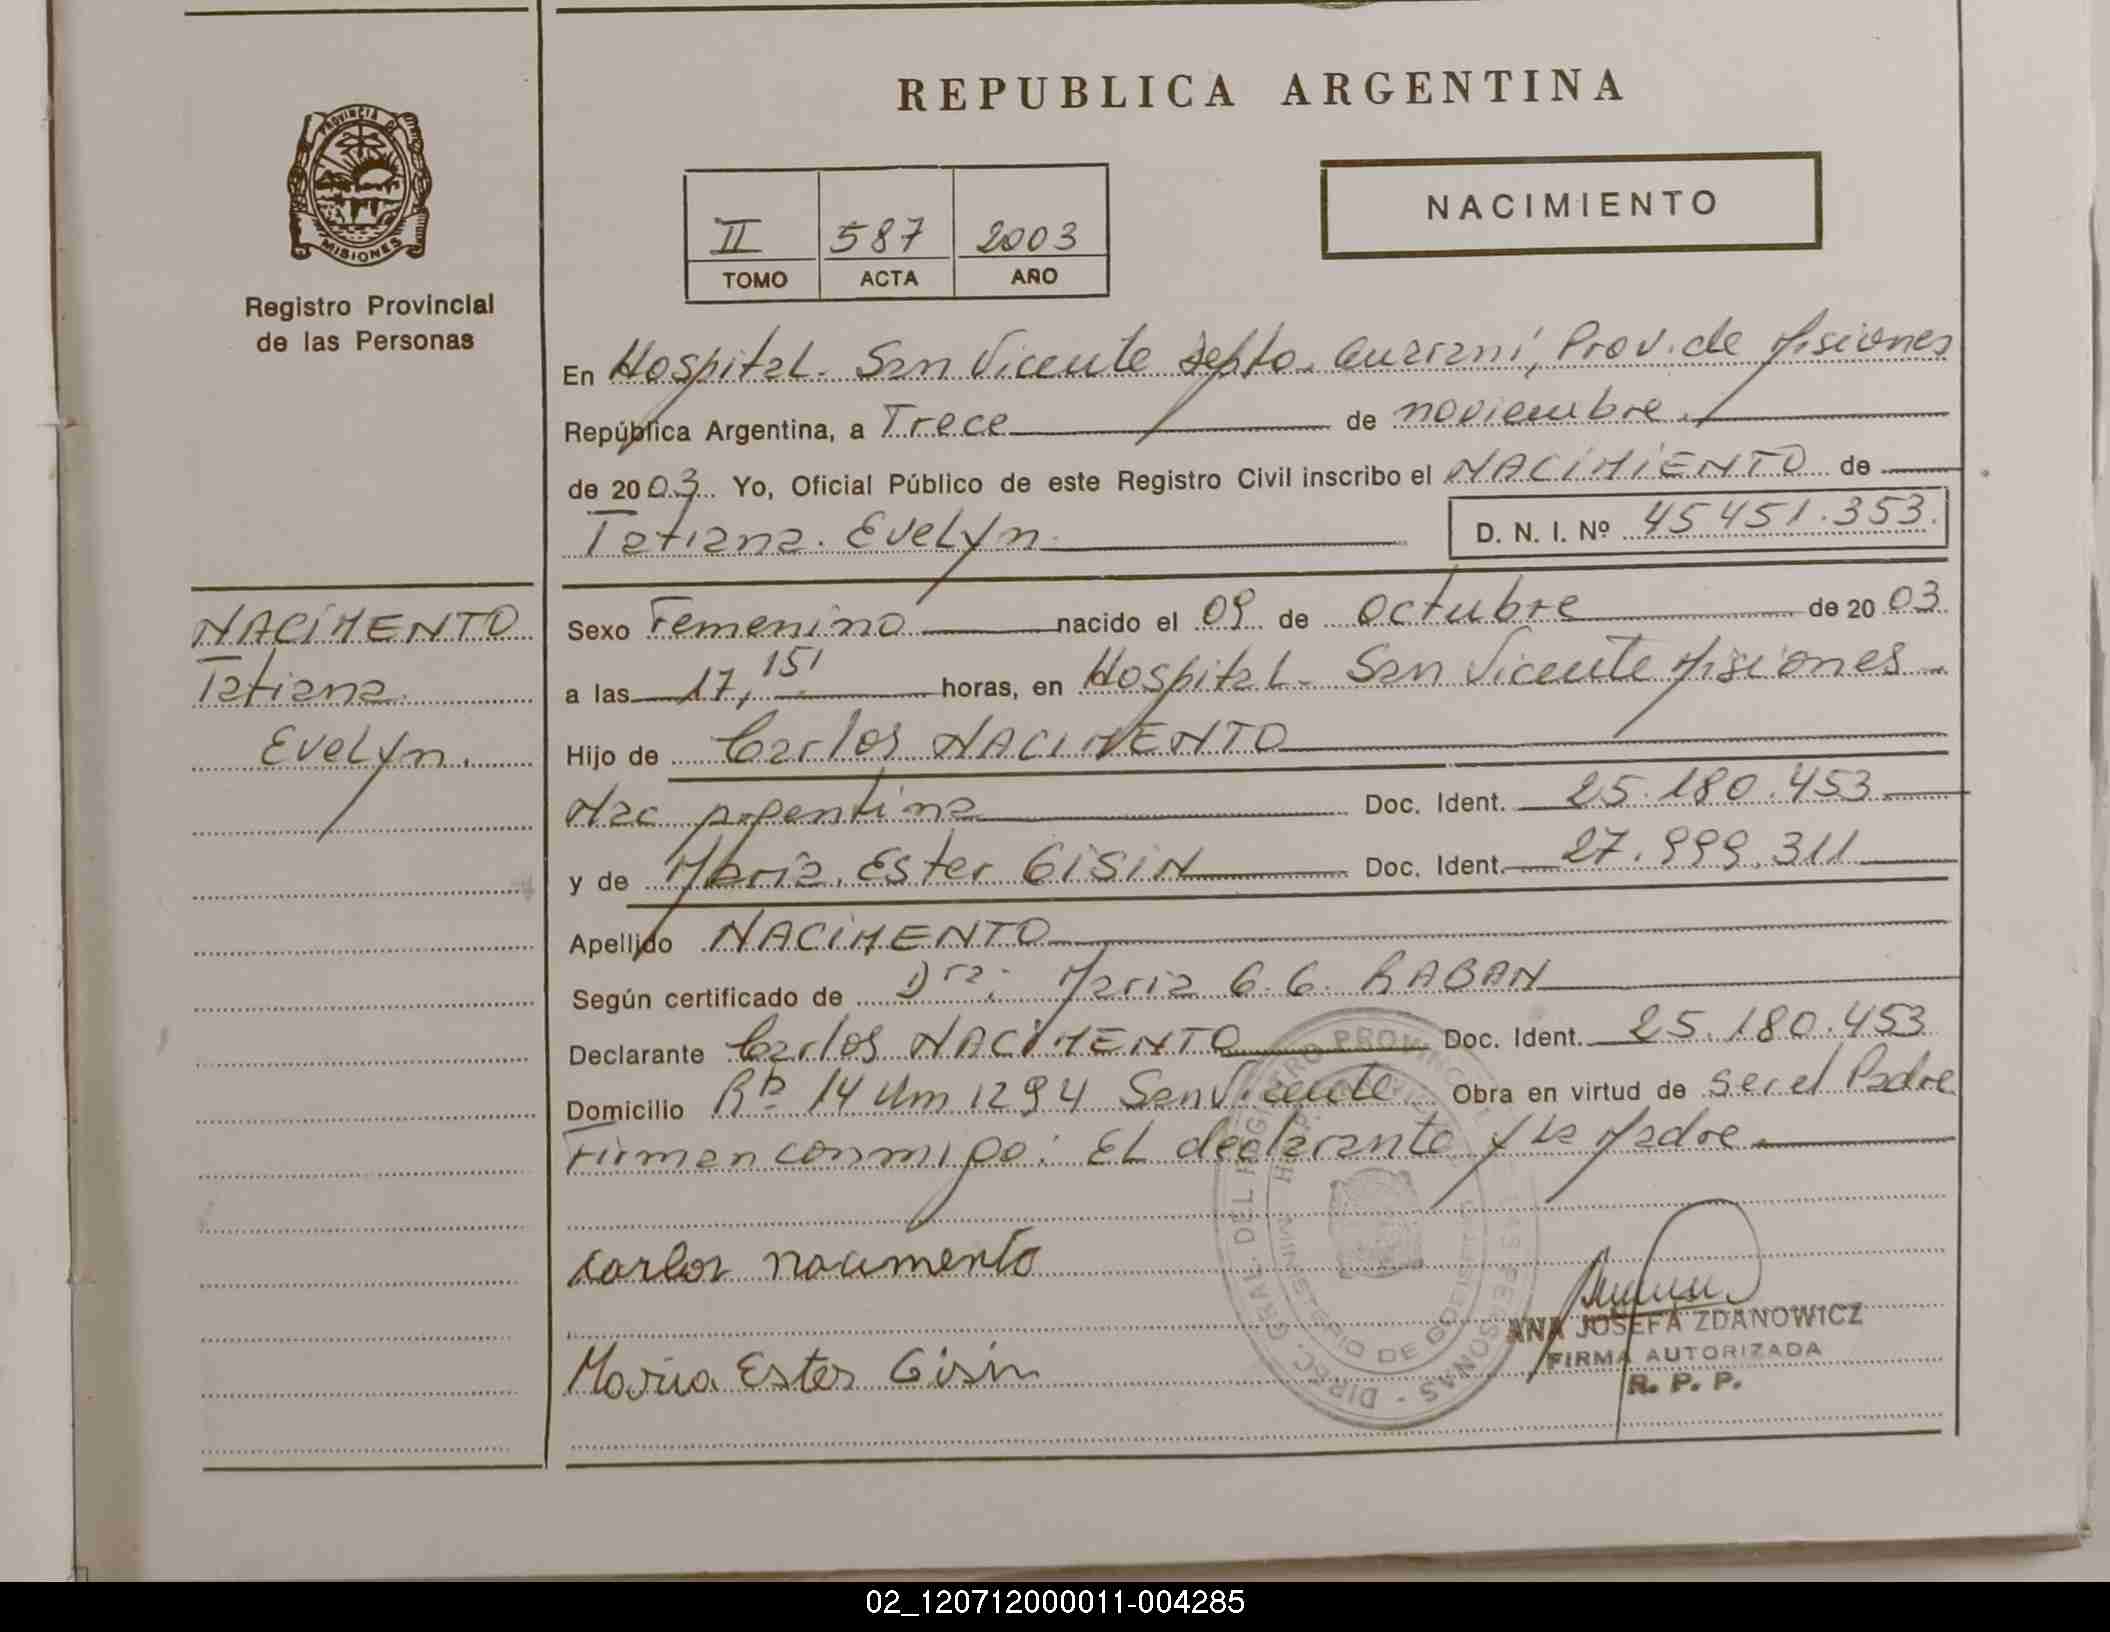 REPUBLICA ARGENTINA
PROVINCIA DE
MISIONES
Registro Provincial
de las Personas
II 587 2003
TOMO ACTA AÑO
NACIMIENTO
En Hospital. San Vicente Depto. Guaraní, Prov. de Misiones
República Argentina, a Trece de noviembre.
de 2003. Yo, Oficial Público de este Registro Civil inscribo el NACIMIENTO de
Tatiana. Evelyn. D. N. I. Nº 45451.353.
NACIMENTO
Tatiana.
Evelyn.
Sexo Femenino nacido el 09 de Octubre de 2003
a las 17,15' horas, en Hospital. San Vicente Misiones
Hijo de Carlos NACIMENTO
Nac Argentina Doc. Ident. 25.180.453
y de María. Ester GISIN Doc. Ident. 27.999.311
Apellido NACIMENTO
Según certificado de Dra: Maria G. G. RABAN
Declarante Carlos NACIMENTO Doc. Ident. 25.180.453
Domicilio Rta 14 Km 1294 San Vicente Obra en virtud de ser el Padre
Firman conmigo: El declarante y la Madre.
carlos nacimento
Maria Ester Gisin
ANA JOSEFA ZDANOWICZ
FIRMA AUTORIZADA
R. P. P.
02_120712000011-004285